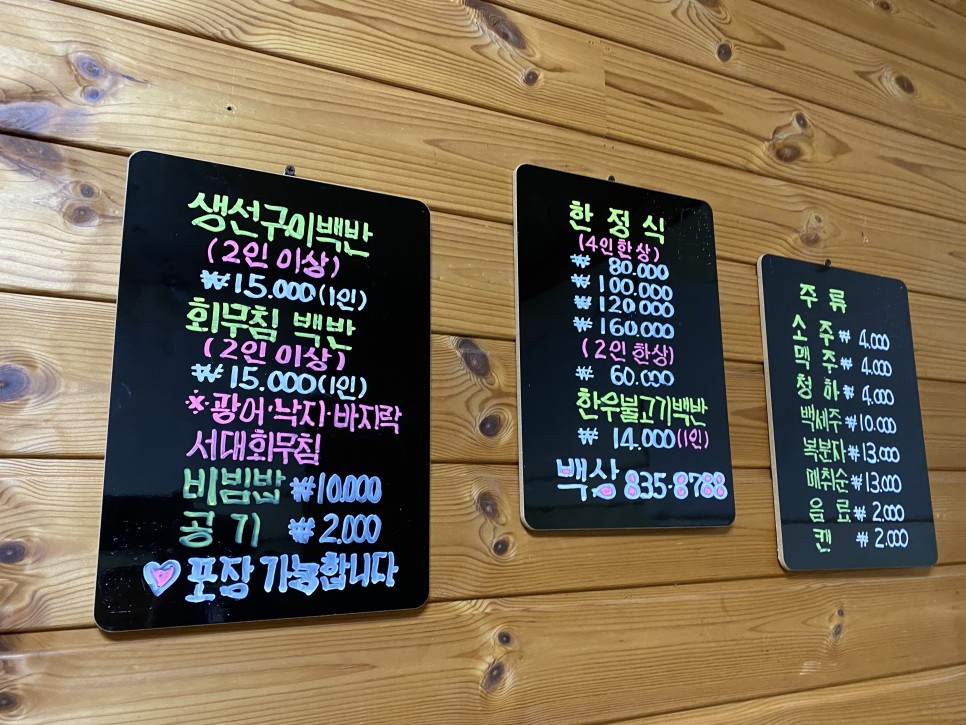 생선구이백반
(2인 이상)
₩15.000(1인)
회무침 백반
(2인 이상)
₩15.000(1인)
※광어·낙지·바지락
서대회무침
비빔밥 ₩10.000
공기 ₩2.000
포장 가능합니다
한정식
(4인한상)
₩ 80.000
₩ 100.000
₩ 120.000
₩ 160.000
(2인한상)
₩ 60.000
한우불고기백반
₩ 14.000(1인)
백상 835·8788
주류
소주 ₩ 4.000
맥주 ₩ 4.000
청하 ₩ 4.000
백세주 ₩10.000
복분자 ₩13.000
매취순 ₩13.000
음료 ₩ 2.000
캔 ₩ 2.000